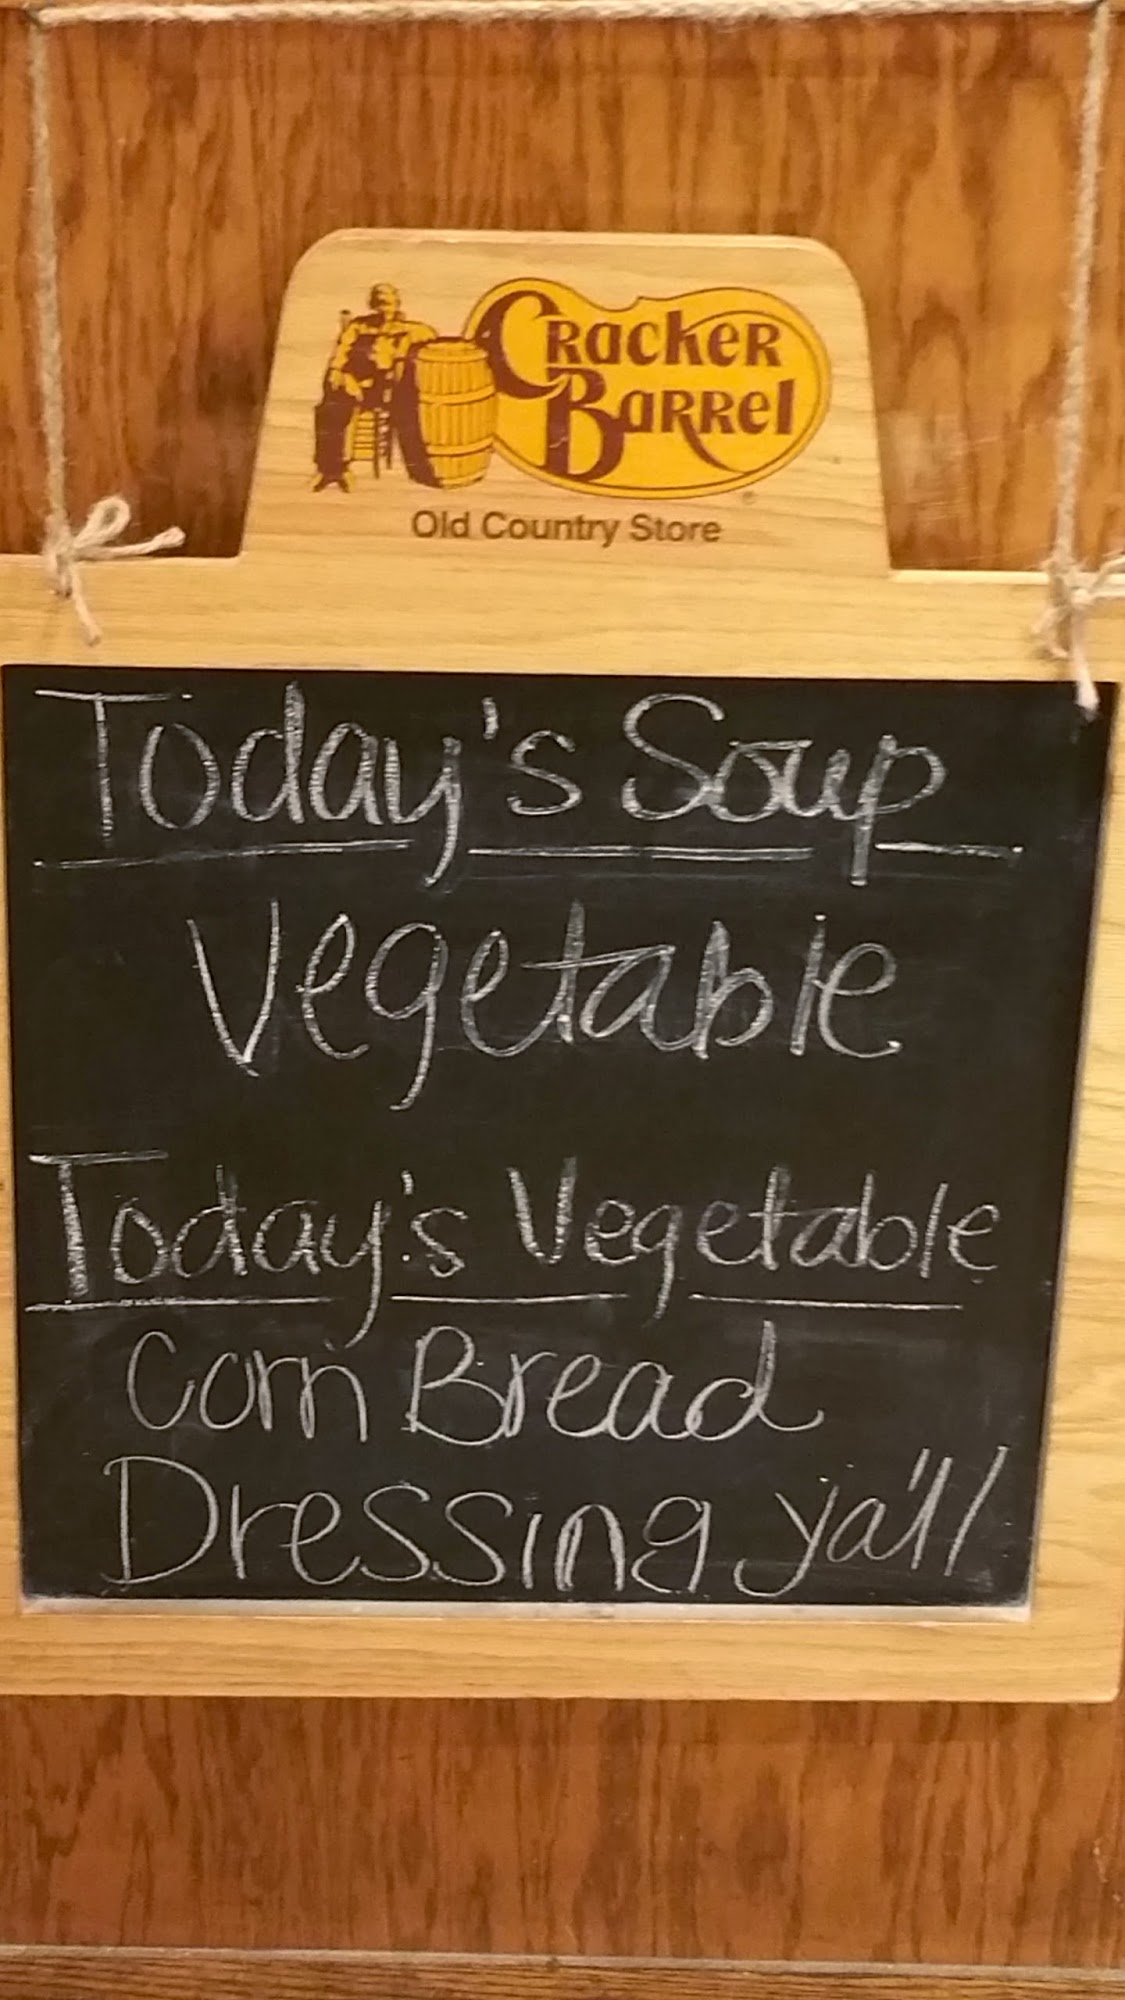 Cracker
Barrel
Old Country Store
Today's Soup
Vegetable
Today's Vegetable
Corn Bread
Dressing ya'll